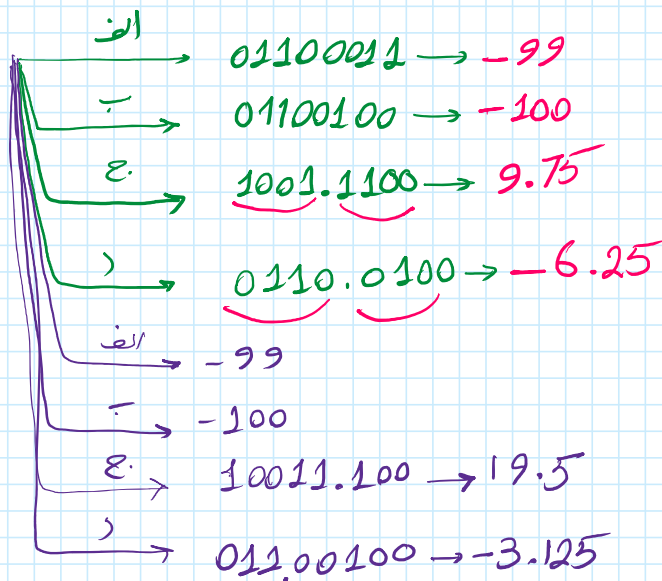 الف 01100011 → -99
ب 01100100 → -100
ج. 1001.1100 → 9.75
د 0110.0100 → -6.25
الف -99
ب -100
ج. 10011.100 → 19.5
د 011.00100 → -3.125